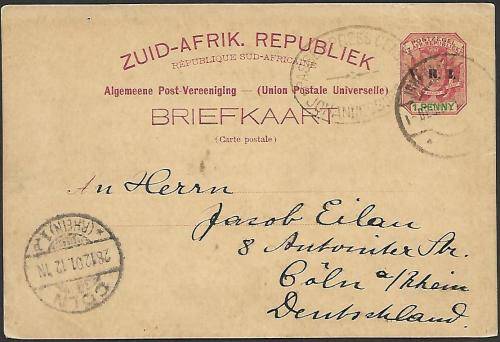 ZUID-AFRIK. REPUBLIEK
RÉPUBLIQUE SUD-AFRICAINE
Algemeene Post-Vereeniging — (Union Postale Universelle)
BRIEFKAART
(Carte postale)
POSTZEGEL
V. R. I.
1 PENNY
JOHANNESB
An Herrn
Jacob Eilau
8 Antoniter Str.
Cöln a/Rhein
Deutschland.
CÖLN
28.12.01. 12-1N
(RHEIN) 1